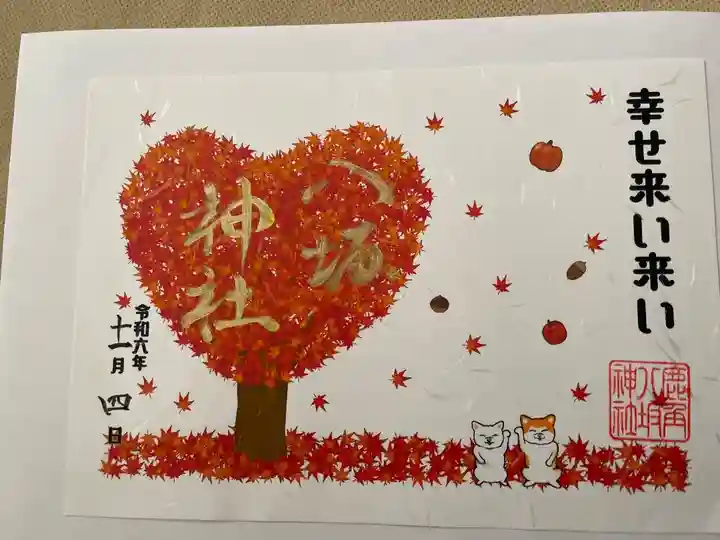 幸せ来い来い
八坂
神社
令和六年
十一月
四日
鹿角
八坂
神社